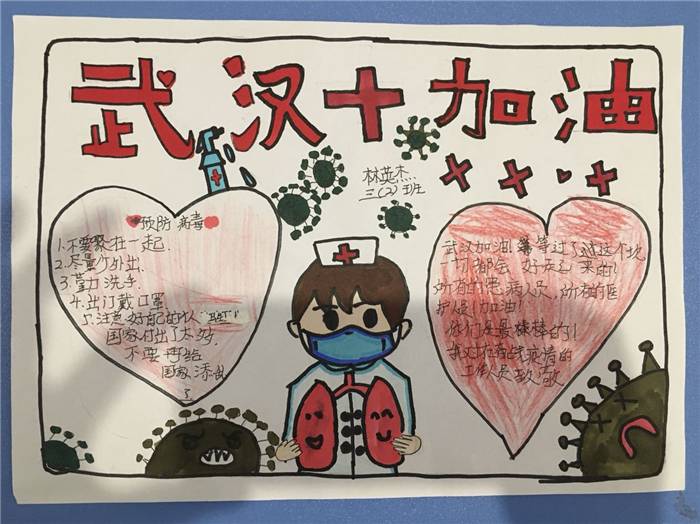 武汉加油
林蓝杰
三(2)班
预防病毒
1.不要聚在一起
2.尽量少外出
3.勤洗手
4.出门戴口罩
5.注意好自己的
国家付出了太多
不要再给
国家添乱
了
武汉加油!等过了过这个坎
切都会好起来的!
所有的患病人员,所有的医
护人员!加油!
他们是最棒棒的!
情的
工作人员致敬